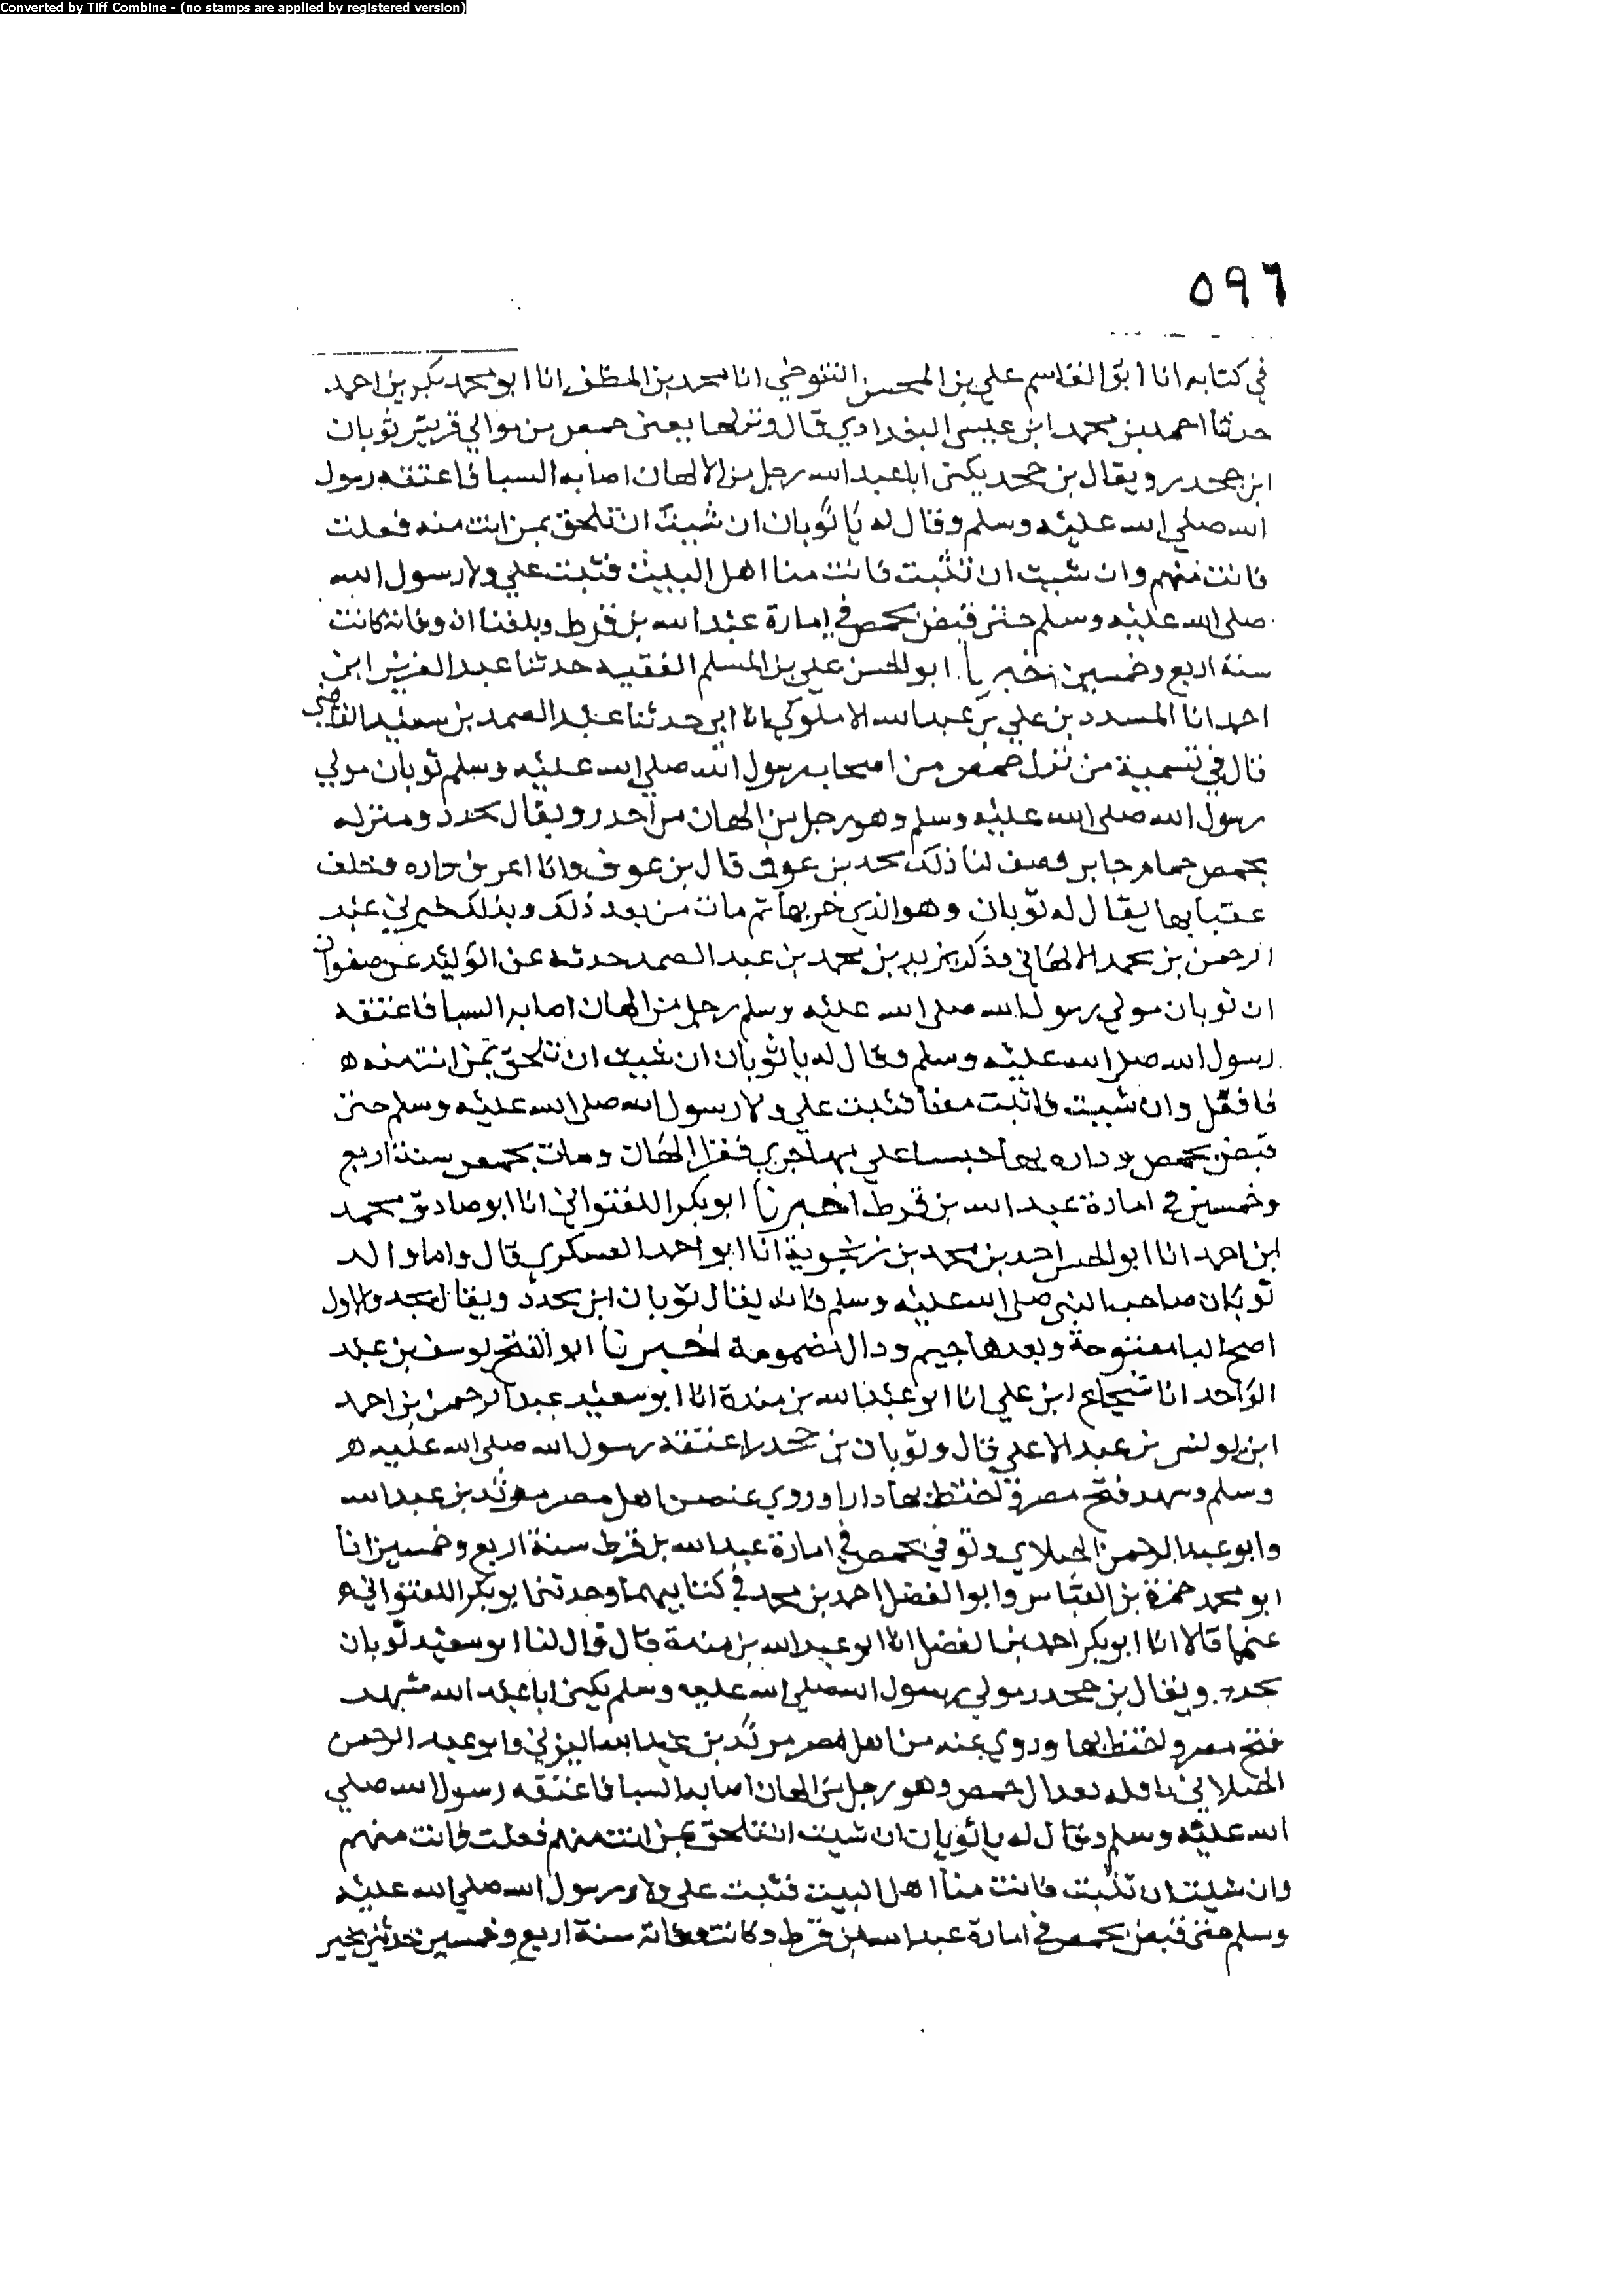 Converted by Tiff Combine - (no stamps are applied by registered version)
٥٩٦
في كتابه انا ابو القاسم علي بن المحسن التنوخي انا محمد بن المظفر انا ابو محمد بكر بن احمد
حدثنا احمد بن محمد ابن عيسى البغدادي قال ونزلها يعني حمص من موالي قريش ثوبان
ابن جحدر ويقال بن جحد يكنى ابا عبد الله رجل من الالهان اصابه السبا فاعتقه رسول
الله صلي الله عليه وسلم وقال له يا ثوبان ان شيت ان تلحق بمن انت منه فعلت
فانت منهم وان شيت ان تثبت فانت منا اهل البيت فثبت علي ولا رسول الله
صلى الله عليه وسلم حتى قبض بحمص في امارة عبد الله بن قرط وبلغنا ان وفاته كانت
سنة اربع وخمسين اخبرنا ابو الحسن علي بن المسلم الفقيه حدثنا عبد العزيز ابن
احمد انا المسدد بن علي بن عبد الله الاملوكي انا ابي حدثنا عبد الصمد بن سعيد القاضي
قال في تسمية من نزل حمص من اصحاب رسول الله صلي الله عليه وسلم ثوبان مولي
رسول الله صلى الله عليه وسلم وهو رجل من الهان من احدر ويقال بحدد ومنزله
بحمص حمام جابر وصف لنا ذلك محمد بن عوف قال بن عوف وانا اعرف داره وخلف
عقبا بها يقال له ثوبان وهو الذي خربها ثم مات من بعد ذلك وبذلك خبرني عبد
الرحمن بن محمد الالهاني وذكر يزيد بن محمد بن عبد الصمد حدثه عن الوليد عن صفوان
ان ثوبان مولي رسول الله صلى الله عليه وسلم رجل من الهان اصابه السبا فاعتقه
رسول الله صلى الله عليه وسلم وقال له يا ثوبان ان شيت ان تلحق بمن انت منه ه
فافعل وان شيت فاثبت معنا فثبت علي ولا رسول الله صلى الله عليه وسلم حتى
قبض بحمص وداره بها حبسا علي مهاجري فقرا الهان ومات بحمص سنة اربع
وخمسين في امارة عبد الله بن قرط اخبرنا ابو بكر اللفتواني انا ابو صادق محمد
ابن احمد انا ابو الحسن احمد بن محمد بن زنجوية انا ابو احمد العسكري قال واما والد
ثوبان صاحب النبي صلى الله عليه وسلم فانه يقال ثوبان ابن بحدد ويقال بجدد والاول
اصح البا مفتوحة وبعدها جيم ودال مضمومة اخبرنا ابو الفتح يوسف بن عبد
الواحد انا شجاع ابن علي انا ابو عبد الله بن مندة انا ابو سعيد عبد الرحمن بن احمد
ابن يونس بن عبد الاعلي قال وثوبان بن جحدر اعتقه رسول الله صلى الله عليه ه
وسلم وشهد فتح مصر واختط بها دارا وروي عنه من اهل مصر مرثد بن عبد الله
وابو عبد الرحمن الحبلاي وتوفي بحمص في امارة عبد الله بن قرط سنة اربع وخمسين انا
ابو محمد حمزة بن العباس وابو الفضل احمد بن محمد في كتابيهما وحدثنا ابو بكر اللفتواني ه
عنهما قالا انا ابو بكر احمد بن الفضل انا ابو عبد الله بن مندة قال قال لنا ابو سعيد ثوبان
بحدد ويقال بن جحدر مولي رسول الله صلى الله عليه وسلم يكنى ابا عبد الله شهد
فتح مصر واختط بها وروي عنه من اهل مصر مرثد بن عبد الله اليزني وابو عبد الرحمن
الحبلاني بحمص وهو رجل من الهان اصابه السبا فاعتقه رسول الله صلي
الله عليه وسلم وقال له يا ثوبان ان شيت ان تلحق بمن انت منهم فعلت فانت منهم
وان شيت ان تثبت فانت منا اهل البيت فثبت على ولا رسول الله صلى الله عليه
وسلم حتى قبض بحمص في امارة عبد الله بن قرط وكانت وفاته سنة اربع وخمسين حدثني بخبر